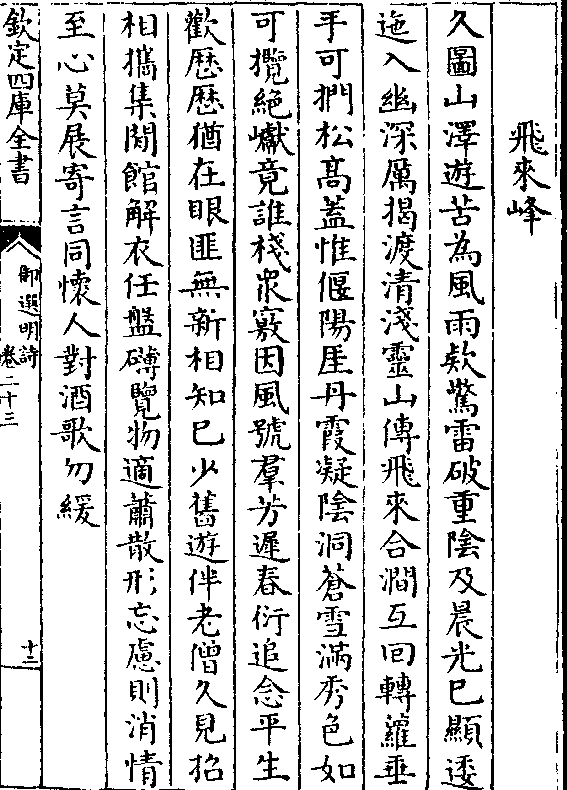 飛來峰
久圖山澤遊苦為風雨欸驚雷破重陰及晨光已顯逶
迤入幽深厲揭渡清淺靈山傳飛來合澗互回轉蘿垂
手可捫松髙蓋惟偃陽厓丹霞凝陰洞蒼雪滿秀色如
可攬絶巘竟誰棧衆竅因風號羣芳遲春衍追念平生
歡歴歴猶在眼匪無新相知已少舊遊伴老僧久見招
相攜集閒館解衣任盤礴覽物適蕭散形忘慮則消情
至心莫展寄言同懷人對酒歌勿緩
欽定四庫全書
御選明詩
卷二十三
十二